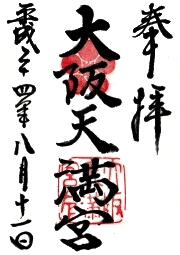 奉拝
大阪天満宮
平成二十四年八月十一日